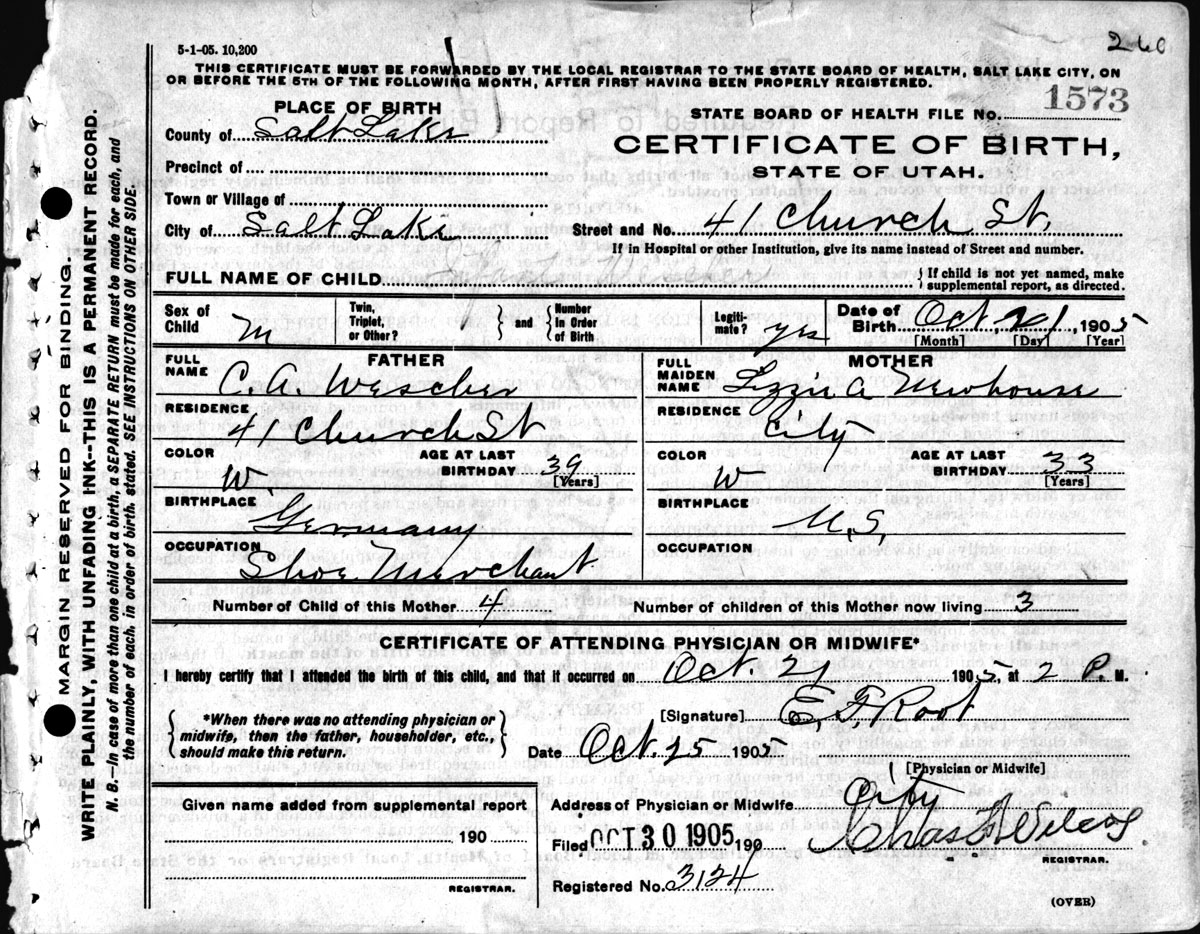 260
5-1-05. 10,200
THIS CERTIFICATE MUST BE FORWARDED BY THE LOCAL REGISTRAR TO THE STATE BOARD OF HEALTH, SALT LAKE CITY, ON
OR BEFORE THE 5TH OF THE FOLLOWING MONTH, AFTER FIRST HAVING BEEN PROPERLY REGISTERED.
PLACE OF BIRTH
STATE BOARD OF HEALTH FILE No. 1573
County of Salt Lake
CERTIFICATE OF BIRTH,
Precinct of
STATE OF UTAH.
Town or Village of
City of Salt Lake
Street and No. 41 Church St.
If in Hospital or other Institution, give its name instead of Street and number.
FULL NAME OF CHILD
{ If child is not yet named, make
supplemental report, as directed.
Sex of Child M
Twin, Triplet, or Other? } and { Number In Order of Birth
Legiti-mate? yes
Date of Birth Oct. 21, 1905
[Month] [Day] [Year]
FATHER
FULL NAME C. A. Wescher
RESIDENCE 41 Church St
COLOR W.
AGE AT LAST BIRTHDAY 39
[Years]
BIRTHPLACE Germany
OCCUPATION Shoe Merchant
MOTHER
FULL MAIDEN NAME Lizzie A Newhouse
RESIDENCE City
COLOR W
AGE AT LAST BIRTHDAY 33
(Years)
BIRTHPLACE U.S.
OCCUPATION
Number of Child of this Mother 4
Number of children of this Mother now living 3
CERTIFICATE OF ATTENDING PHYSICIAN OR MIDWIFE*
I hereby certify that I attended the birth of this child, and that it occurred on Oct. 21 1905, at 2 P. M.
{ *When there was no attending physician or
midwife, then the father, householder, etc.,
should make this return. }
[Signature] E. F. Root
Date Oct. 25 1905
[Physician or Midwife]
Given name added from supplemental report
190
REGISTRAR.
Address of Physician or Midwife City
Filed OCT 30 1905 190 Chas F Wilcox
REGISTRAR.
Registered No. 3124
(OVER)
MARGIN RESERVED FOR BINDING.
WRITE PLAINLY, WITH UNFADING INK--THIS IS A PERMANENT RECORD.
N. B.--In case of more than one child at a birth, a SEPARATE RETURN must be made for each, and
the number of each, in order of birth, stated. SEE INSTRUCTIONS ON OTHER SIDE.